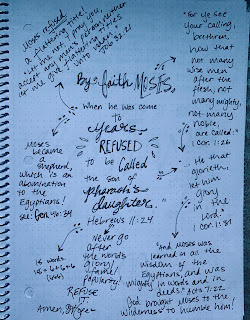 Moses refused
a flattering title!
"Let me not, I pray you,
accept any man's person, neither
let me give flattering titles
unto man."
Job 32:21
"For ye see
your calling,
brethren,
how that
not many
wise men
after the
flesh, not
many mighty,
not many
noble,
are called:"
1 Cor. 1:26
By faith Moses,
when he was come
to
years,
REFUSED
to be called
the son of
pharaoh's
daughter.
Hebrews 11:24
Moses
became
a
shepherd,
which is an
abomination
to the
Egyptians!
see: Gen. 46:34
"...He that
glorieth,
let him
glory
in the
Lord."
1 Cor. 1:31
Never go
after
the world's
glory!
fame!
popularity!
REFUSE
it!
Amen,
18 words
18 = 6+6+6
"And Moses was
learned in all the
wisdom of the
Egyptians, and was
mighty in words and in
deeds." Acts 7:22
God brought Moses to the
wilderness to humble him!